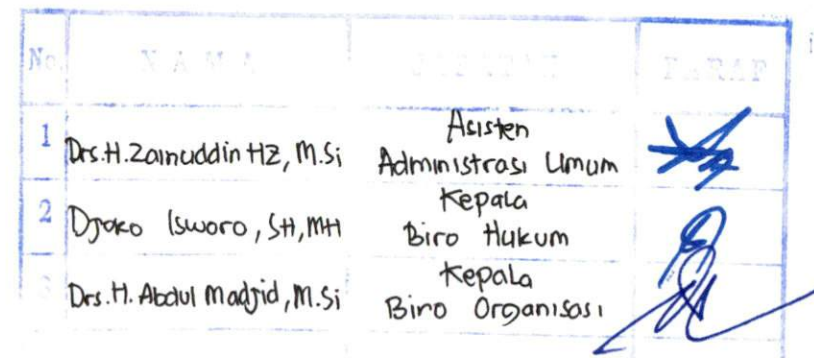 No. NAMA JABATAN PARAF
1 Drs.H.Zainuddin HZ, M.Si Asisten Administrasi Umum
2 Djoko Isworo, SH, MH Kepala Biro Hukum
3 Drs.H. Abdul Madjid, M.Si Kepala Biro Organisasi